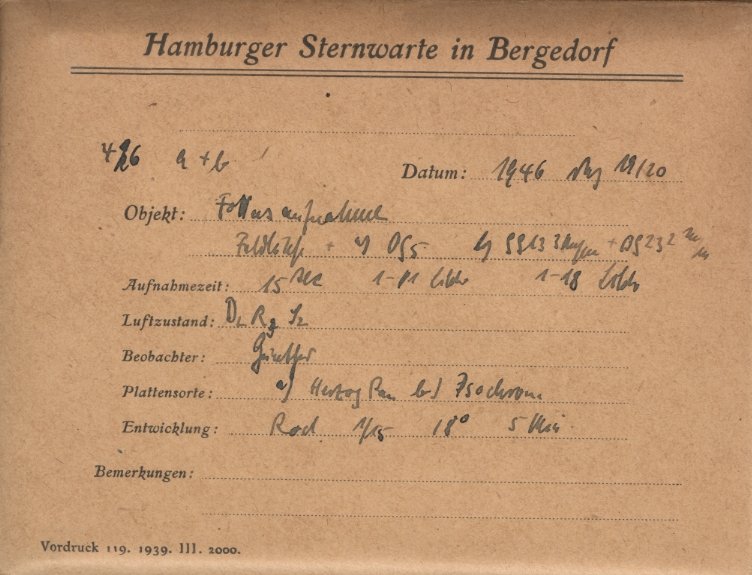 Hamburger Sternwarte in Bergedorf
426 a + b
Datum: 1946 19/20
Objekt: Fokusaufnahme
+ a) OG5 b) GG13 + BG23 2
Aufnahmezeit: 15 sec 1-11 1-18
Luftzustand: D2 R3 S2
Beobachter: Günther
Plattensorte: a) Herzog Pan b) Isochrom
Entwicklung: Rod 1/15 18° 5 Min
Bemerkungen:
Vordruck 119. 1939. III. 2000.